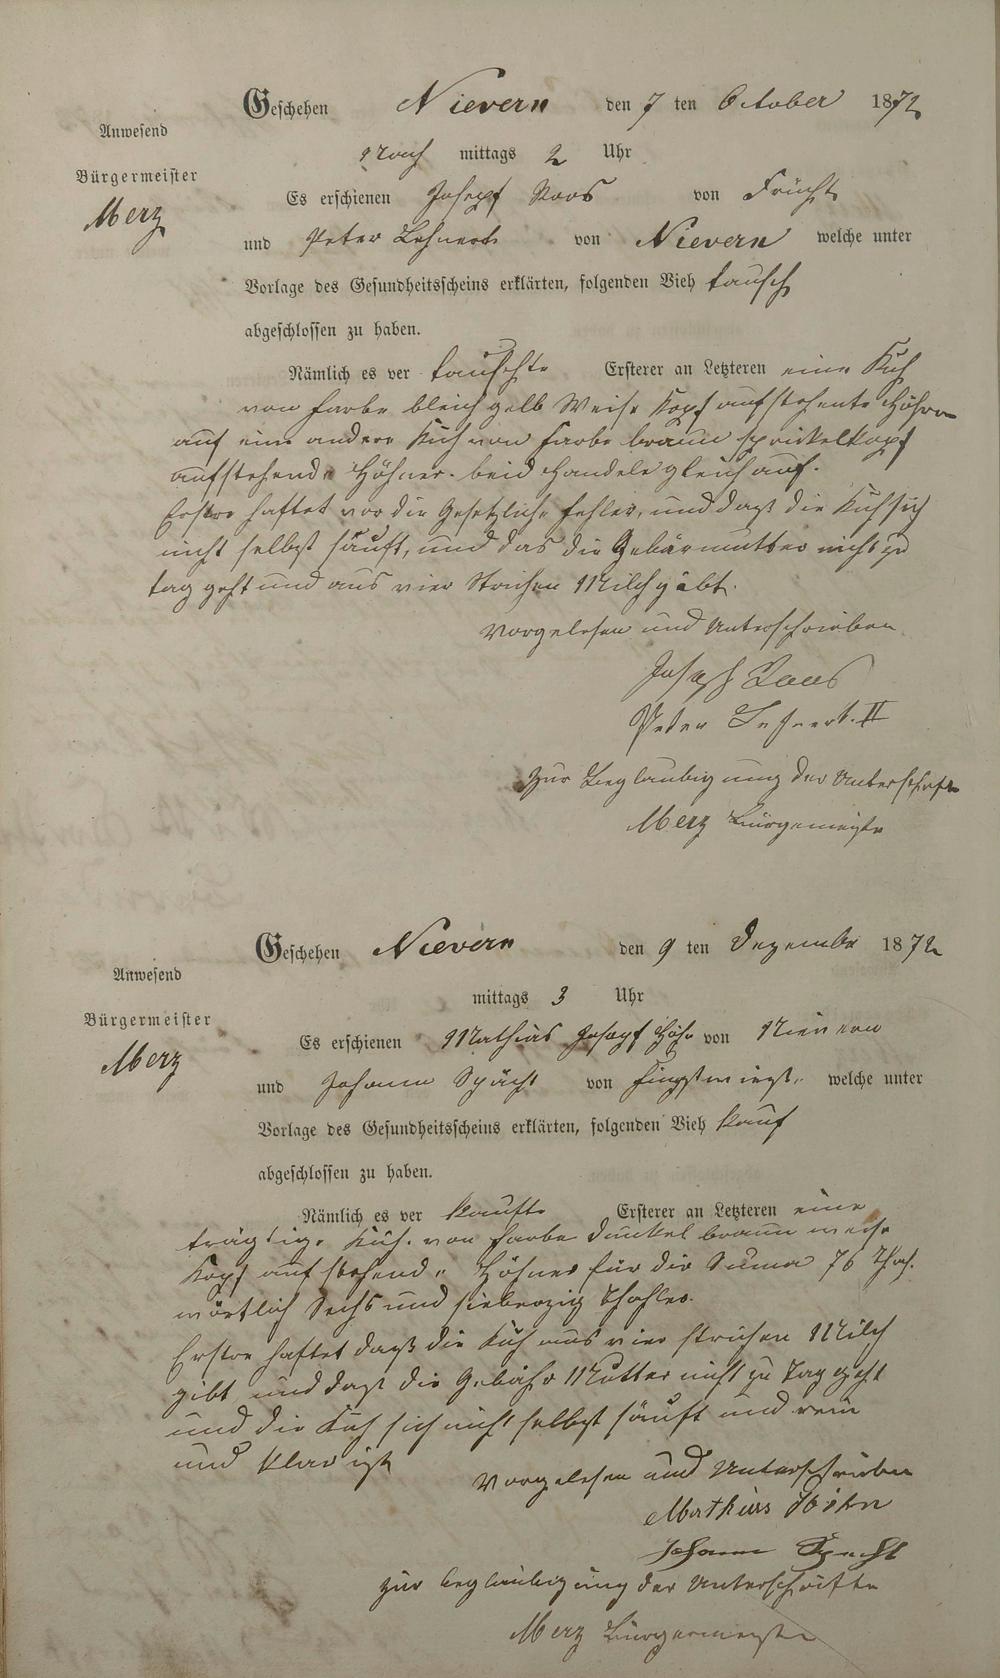 Geschehen Nievern den 7 ten October 1872
Anwesend
Nach mittags 2 Uhr
Bürgermeister
Es erschienen Josepf Roos von Frücht
Merz
und Peter Lehnert von Nievern welche unter
Vorlage des Gesundheitsscheins erklärten, folgenden Vieh tausch
abgeschlossen zu haben.
Nämlich es ver tauschte Ersterer an Letzteren eine Kuh
von farbe bleich gelb Weise Kopf aufstehente Höhrner
auf eine andere Kuh von farbe braun sprickelkopf
aufstehende Höhner. beid Handele gleich auf.
Erstre haftet vor die Gesetzliche fehler, und daß die Kuh sich
nicht selbst säuft, und das die Gebärmutter nicht zu
tag geht und aus vier Strichen Milch gibt.
Vorgelesen und Unterschrieben
Joseph Roos
Peter Lehnert. II
Zur Beglaubigung der Unterschrift
Merz Bürgemeister
Geschehen Nievern den 9 ten Dezember 1872
Anwesend
mittags 3 Uhr
Bürgermeister
Es erschienen Mathias Josepf Höhn von Nievern
Merz
und Johann Spächt von welche unter
Vorlage des Gesundheitsscheins erklärten, folgenden Vieh kauf
abgeschlossen zu haben.
Nämlich es ver kaufte Ersterer an Letzteren eine
trägtige Kuh. von farbe dunkel braun weise
Kopf aufstehende Höhner für die Suma 76 Thal.
wörtlich Sechs und siebenzig Thahler.
Erstre haftet daß die Kuh aus vier strichen Milch
gibt und daß die Gebähr Mutter nicht zu Tag geht
und die Kuh sich nicht selbst säuft und rein
und klar ist
Vorgelesen und Unterschrieben
Mathias Höhn
Johann Specht
zur beglaubigung der Unterschrifte
Merz Bürgermeister